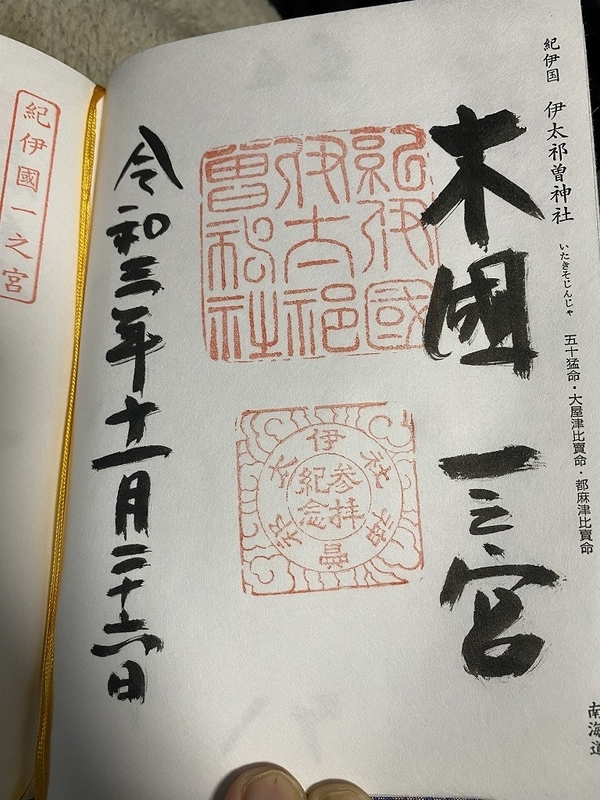 紀伊国 伊太祁曽神社 いたきそじんじゃ 五十猛命・大屋津比賣命・都麻津比賣命
南海道
木國 一之宮
紀伊國
伊太祁
曾神社
伊太祁曽神社
参拝
紀念
令和三年十一月二十六日
紀伊國一之宮